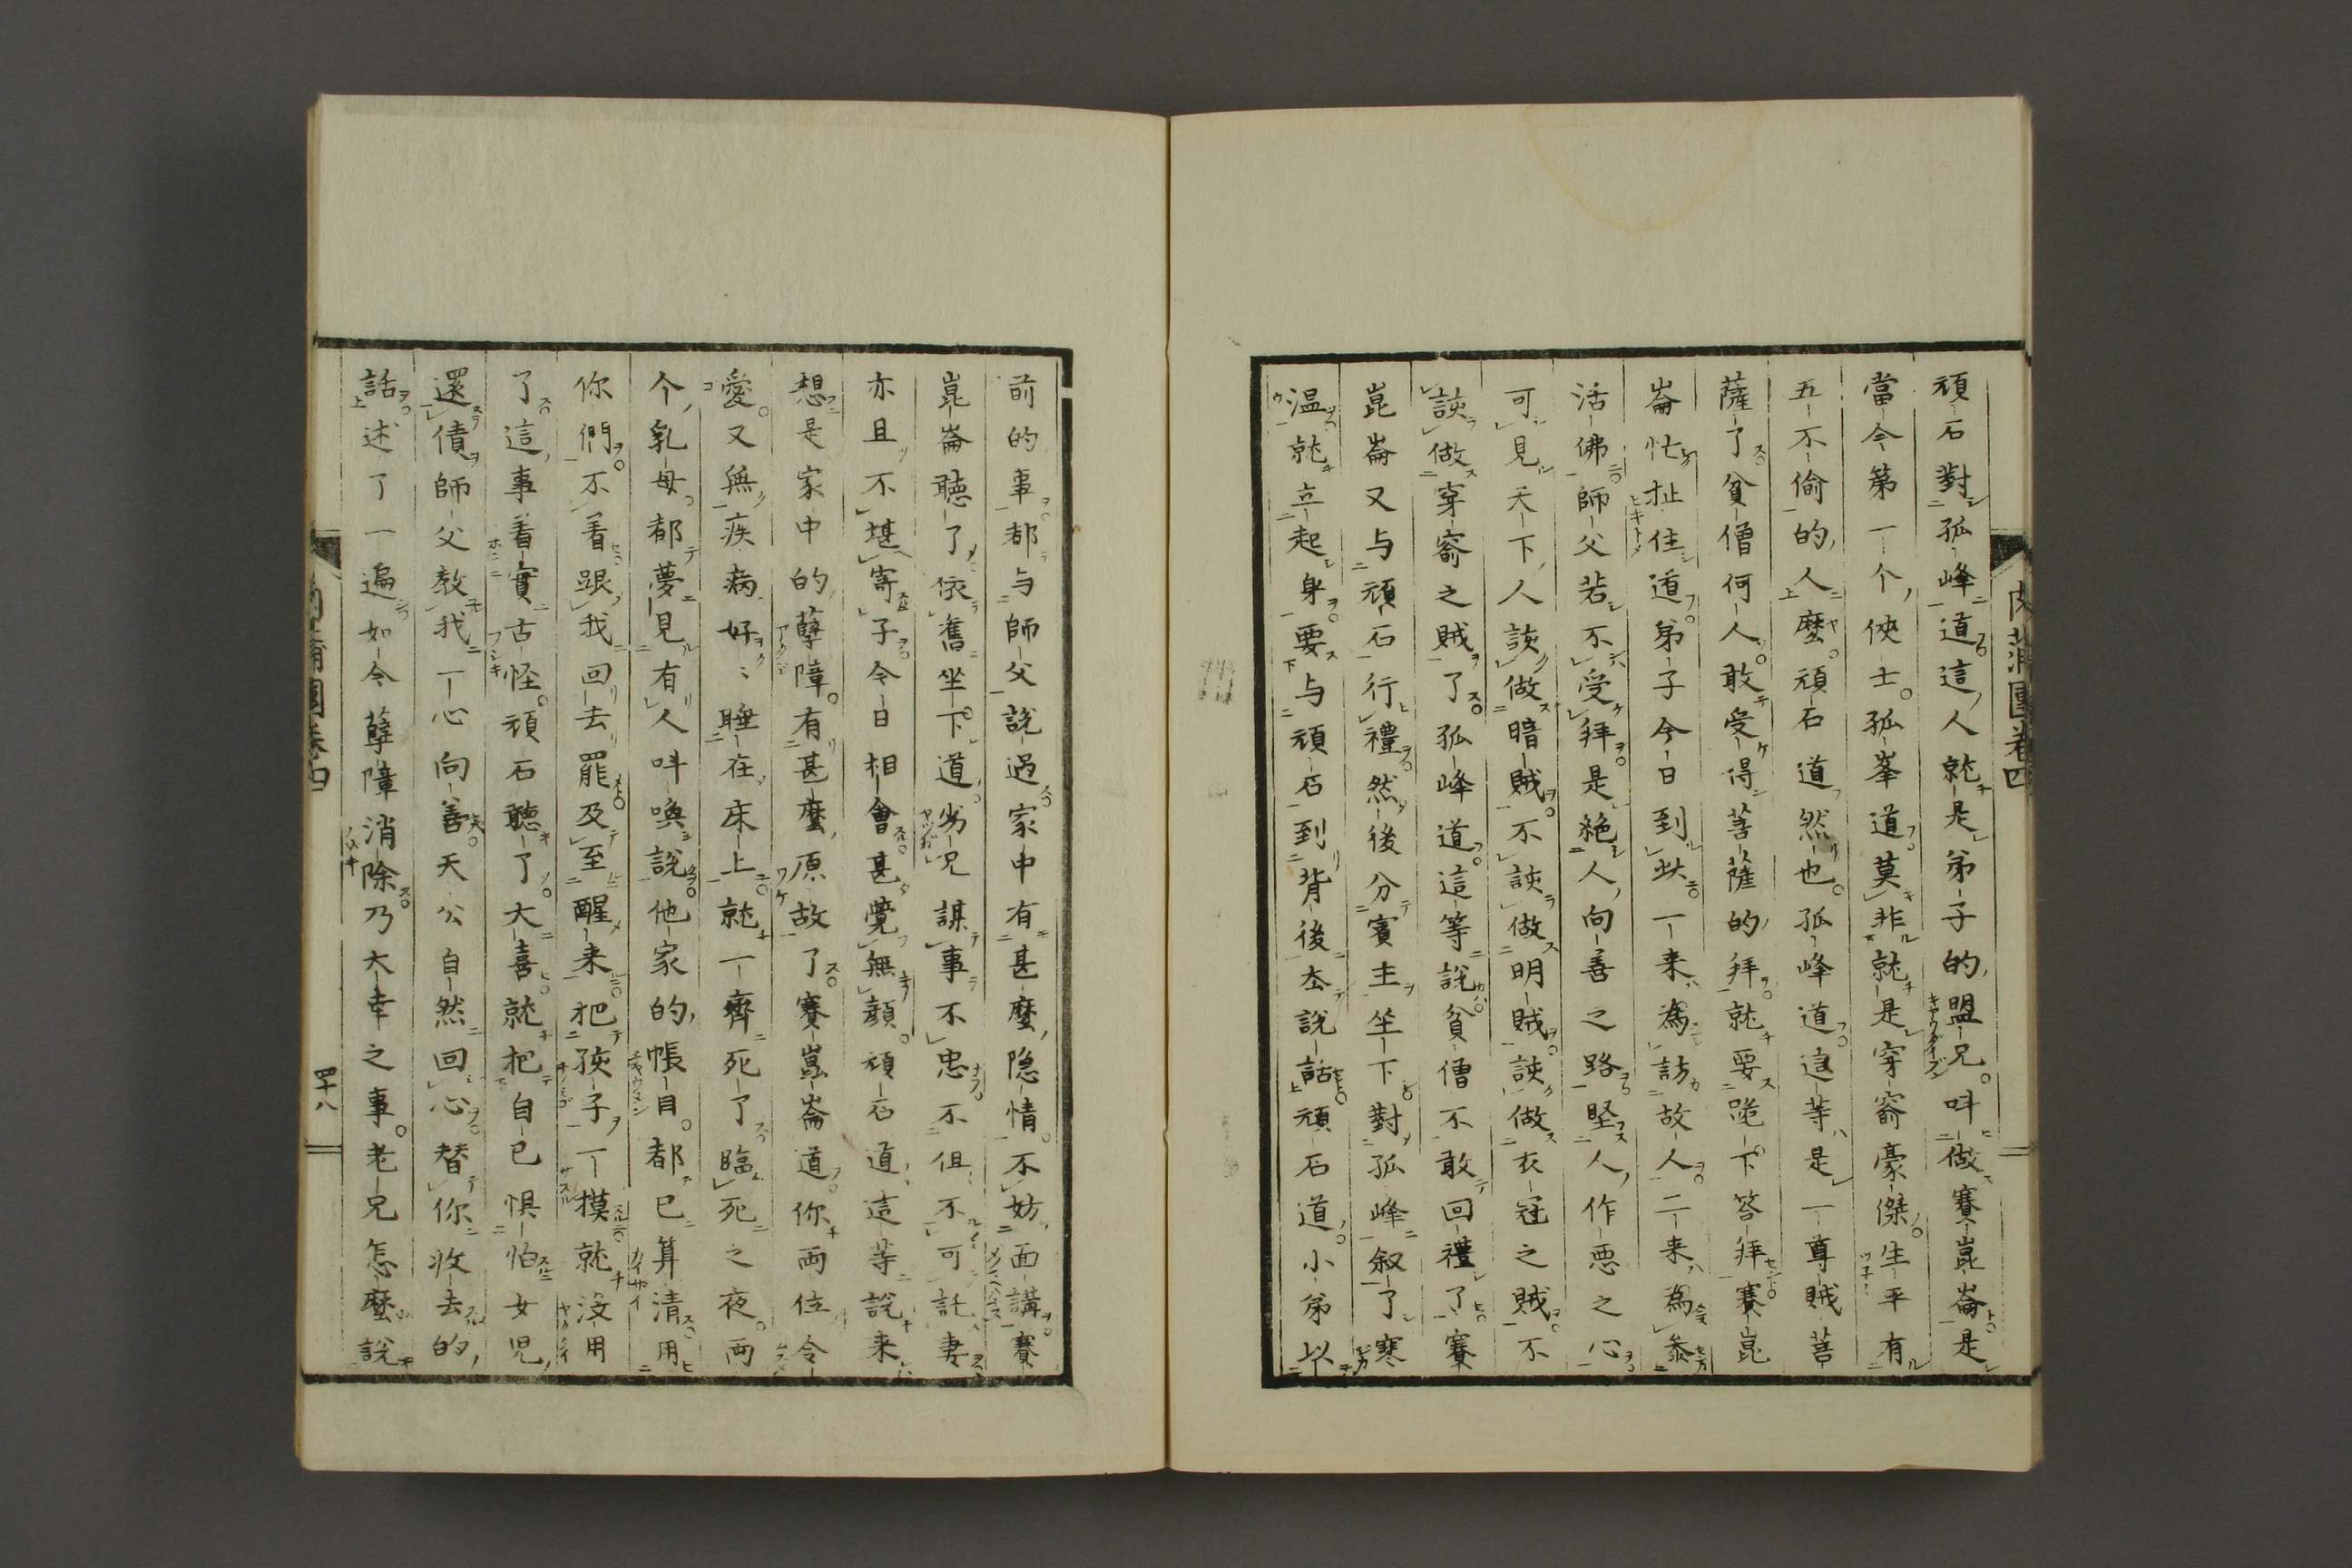 肉蒲團卷四
頑石對孤峰道這人就是弟子的盟兄。叫做賽崑崙是
當今第一个俠士。孤峯道莫非就是穿窬豪傑。生平有
五不偷的人麼。頑石道然也。孤峰道這等是一尊賊菩
薩了貧僧何人敢受得菩薩的拜就要跪下答拜賽崑
崙忙扯住道弟子今日到此一来為訪故人二来為叅
活佛師父若不受拜是絕人向善之路堅人作惡之心
可見天下人該做暗賊不該做明賊該做衣冠之賊不
該做穿窬之賊了孤峰道這等說貧僧不敢回禮了賽
崑崙又与頑石行禮然後分賓主坐下對孤峰叙了寒
温就立起身要与頑石到背後去說話頑石道小弟以
前的事都与師父說過家中有甚麼隐情。不妨面講賽
崑崙聴了依舊坐下道劣兄謀事不忠不但不可託妻
亦且不堪寄子今日相會甚覺無顔。頑石道這等說来
想是家中的孽障。有甚麼原故了賽崑崙道你兩位令
愛。又無疾病好〻睡在床上就一齊死了臨死之夜。兩
个乳母都夢見有人叫喚說他家的帳目。都已算清用
你們不着跟我回去罷及至醒来把孩子一摸就沒用
了這事着實古怪。頑石聽了大喜就把自己惧怕女児
還債師父教我一心向善天公自然回心替你收去的
話述了一遍如今孽障消除乃大幸之事。老兄怎麼說
肉蒲團卷四
四十八